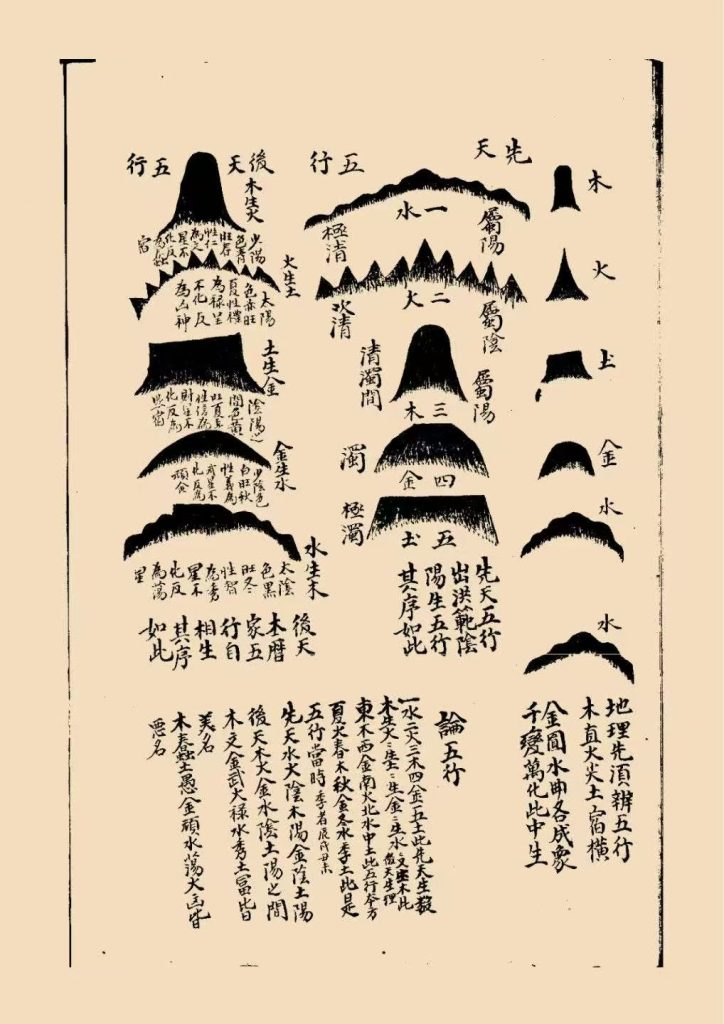 木
火
土
金
水
水
地理先須辨五行
木直火尖土宿橫
金圓水曲各成象
千變萬化此中生
先天五行
一水
屬陽
極清
二火
屬陰
次清
三木
屬陽
清濁間
四金
濁
五土
極濁
先天五行
出洪範陰
陽生五行
其序如此
後天五行
木生火
少陽
色青
旺春
性仁
為文
星不
化反
為蠢
宿
火生土
太陽
色赤旺
夏性禮
為祿星
不化反
為凶神
土生金
陰陽之
間色黃
旺夏季
性信為
財星不
化反為
金生水
少陰色
白旺秋
性義為
武星不
化反為
頑金
水生木
太陰
色黑
旺冬
性智
為秀
星不
化反
為蕩
星
後天
本曆
家五
行自
相生
其序
如此
論五行
一水二火三木四金五土此先天生數
木生火〻生土〻生金〻生水〻又生木此後天生理
東木西金南火北水中土此五行本方
夏火春木秋金冬水季土此是
五行當時 季者辰戌丑未
先天水火陰木陽金陰土陽
後天木火金水陰土陽之間
木文金武火祿水秀土富此皆
美名
木蠢土愚金頑水蕩火凶皆
惡名